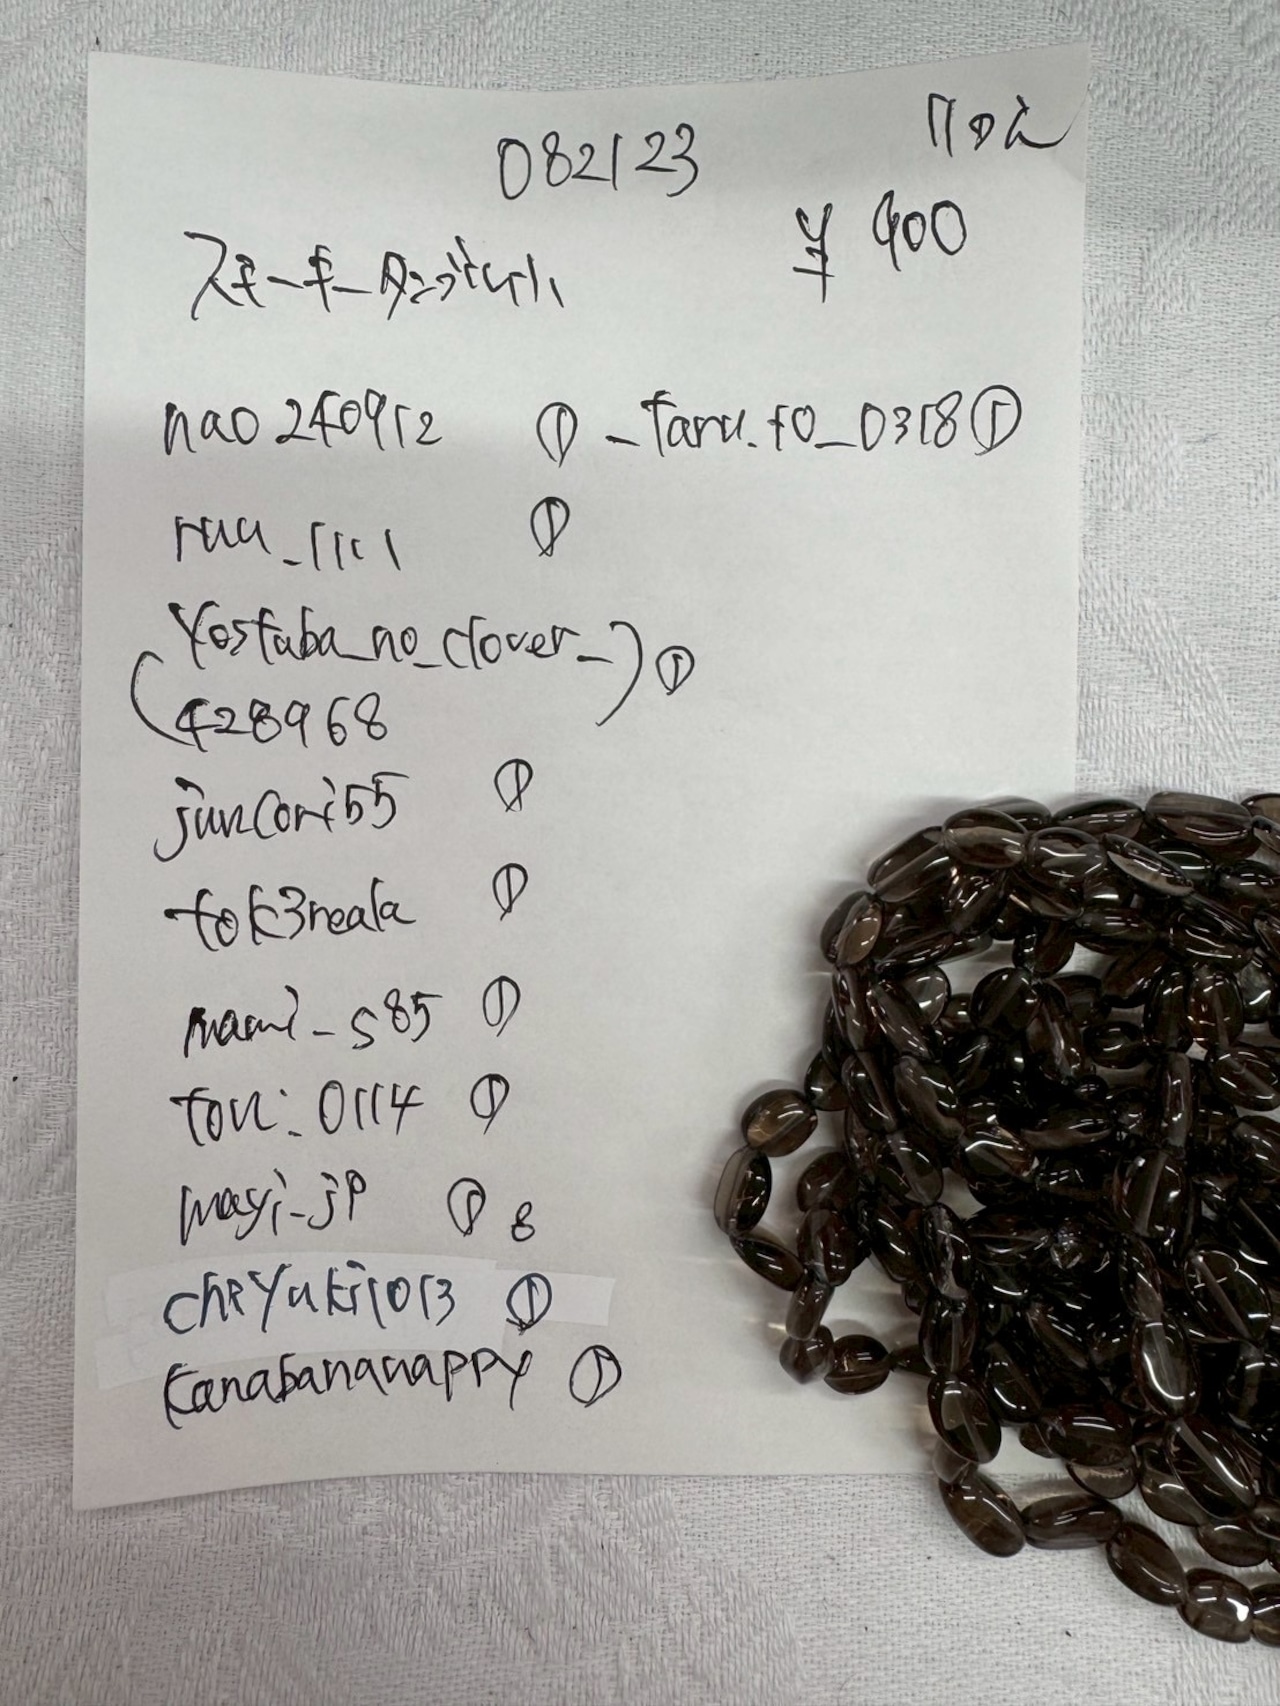 082123
¥ 900
スモーキータンブル小
nao240912 ① _taru.to_0318 ①
ruu_1111 ①
(yostuba_no_clover_) ①
428968
juncori55 ①
tok3reala ①
mami_s85 ①
ton:_0114 ①
mayi_jp ① 8
chRYuki1013 ①
kanabananappy ①